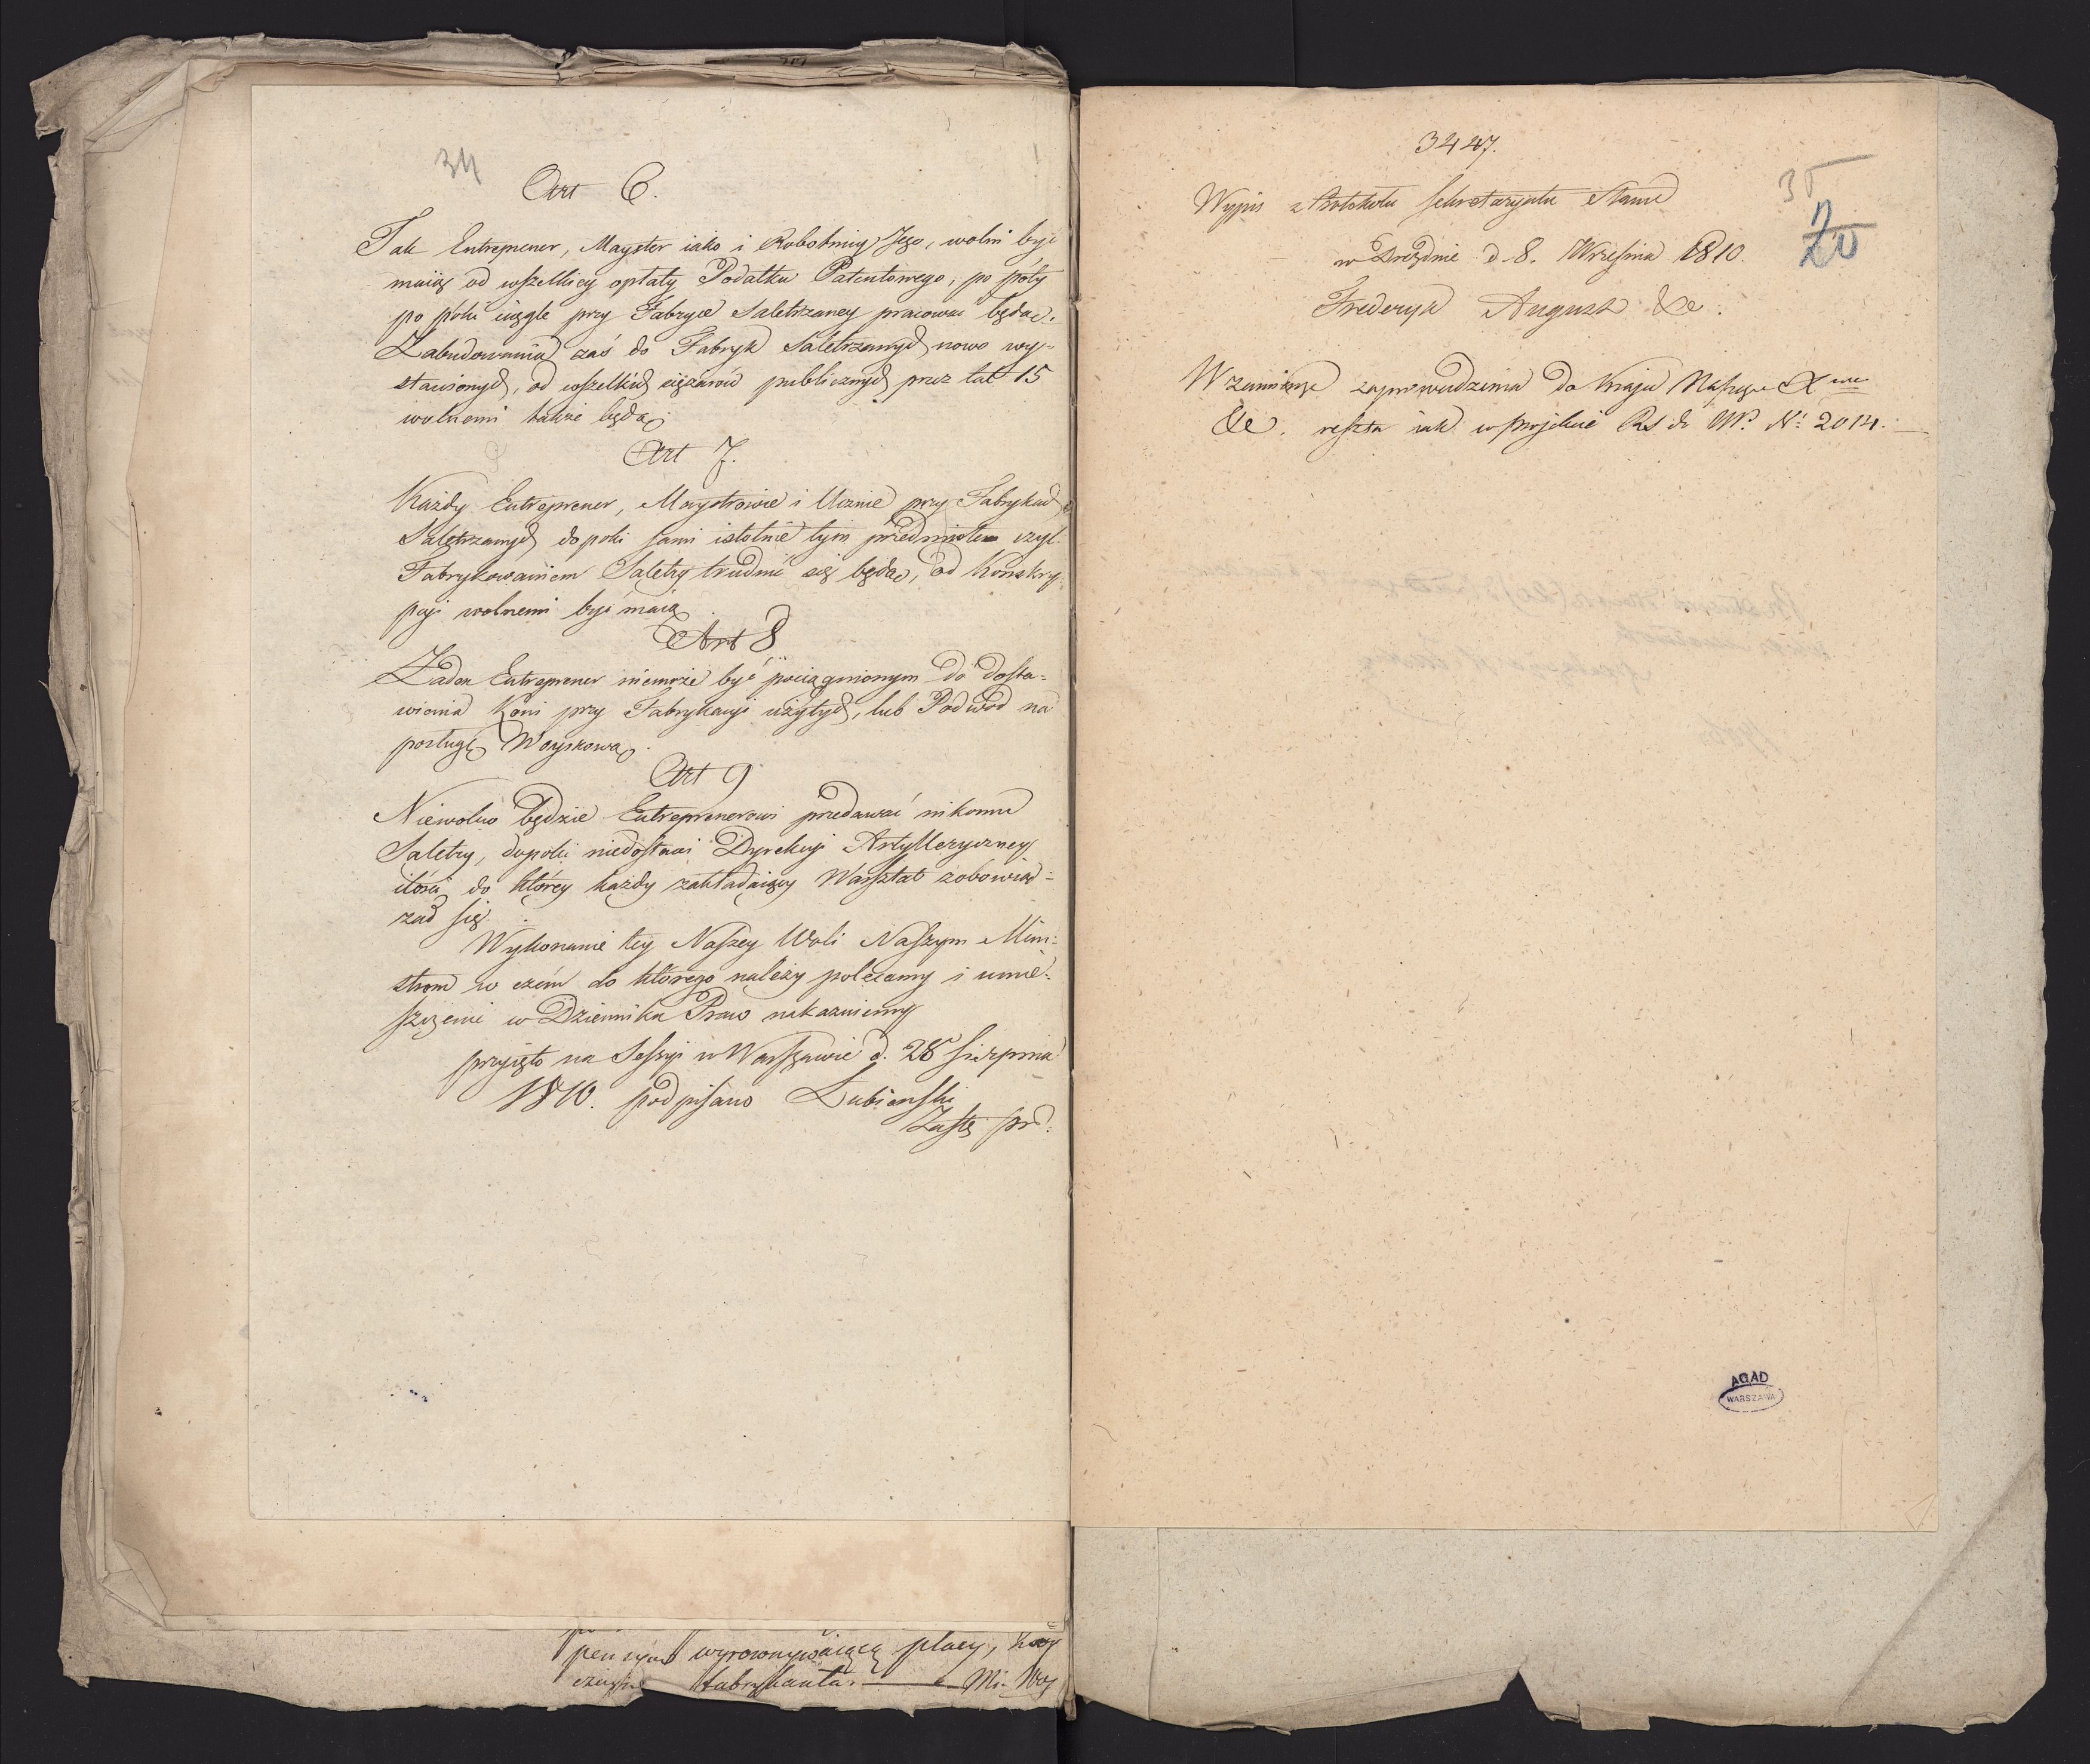 34
Art 6.
Tak Entreprener, Mayster iako i Robotnicy Jego, wolni być
maią od wszelkiey opłaty Podatku Patentowego, po póty
po póki ciągle przy Fabryce Saletrzaney pracować będą.
Zabudowania zaś do Fabryk Saletrzanych nowo wy-
stawionych, od wszelkich ciężarów publicznych przez lat 15
wolnemi także będą.
Art 7.
Każdy Entreprener, Maystrowie i Ucznie przy Fabrykach
Saletrzanych dopóki sami istotnie tym przedmiotem czyl
Fabrykowaniem Saletry trudnić się będą, od Konskry-
pcyi wolnemi być maią.
Art 8
Żaden Entreprener niemoże być pociągnionym do dosta-
wienia Koni przy Fabrykacyi użytych, lub Podwod na
posługę Woyskową.
Art 9
Niewolno będzie Entreprenerowi przedawać nikomu
Saletry, dopóki niedostawi Dyrekcyi Artylleryczney
ilości do którey każdy zakładaiący Warsztat zobowią-
zał się.
Wykonanie tey Naszey Woli Naszym Mini-
strom w czém do którego należy polecamy i umie-
szczenie w Dzienniku Praw nakazuiemy
przyięto na Sessyi w Warszawie d. 28 Sierpnia
1810. podpisano Lubienski
Zastę: pr:
pensyą wyrownywaiącą płacy,
fabrykanta. — Mi. Woy
3447.
35
20
Wypis z Protokołu Sekretaryatu Stanu
w Dreznie d. 8. Września 1810.
Frederyk August &c.
W zamiarze zaprowadzenia do Kraju Naszego X
&c. reszta iak w projekcie Rs do W. Nº 2014.
AGAD
WARSZAWA